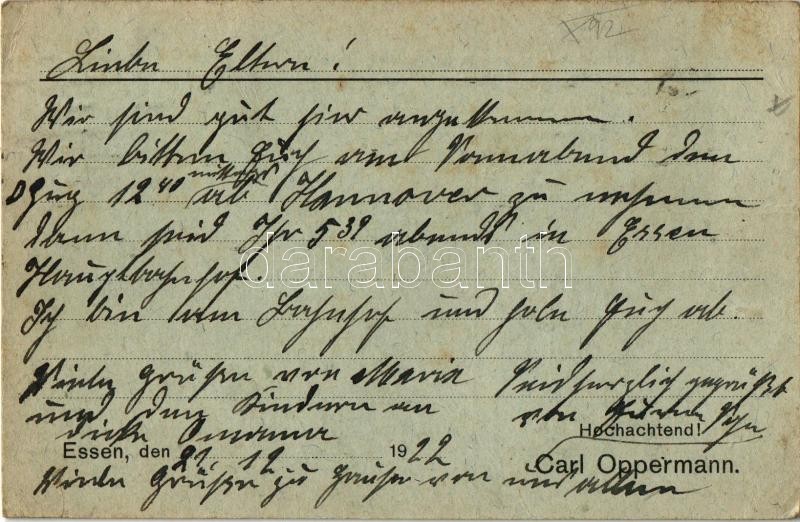 Liebe Eltern!
Wir sind gut hier angekommen.
Wir bitten Euch am Sonnabend den
D Zug 12 40 mittags ab Hannover zu nehmen
dann seid Ihr 5 39 abends in Essen
Hauptbahnhof.
Ich bin am Bahnhof und hole Euch ab.
Viele Grüße von Maria
und den Kindern an
dicke Omama
Seid herzlich gegrüßt
von Eurem Sohn
Hochachtend!
Essen, den 21. 12 1922
Carl Oppermann.
Viele Grüße zu Hause von und allen
darabanth